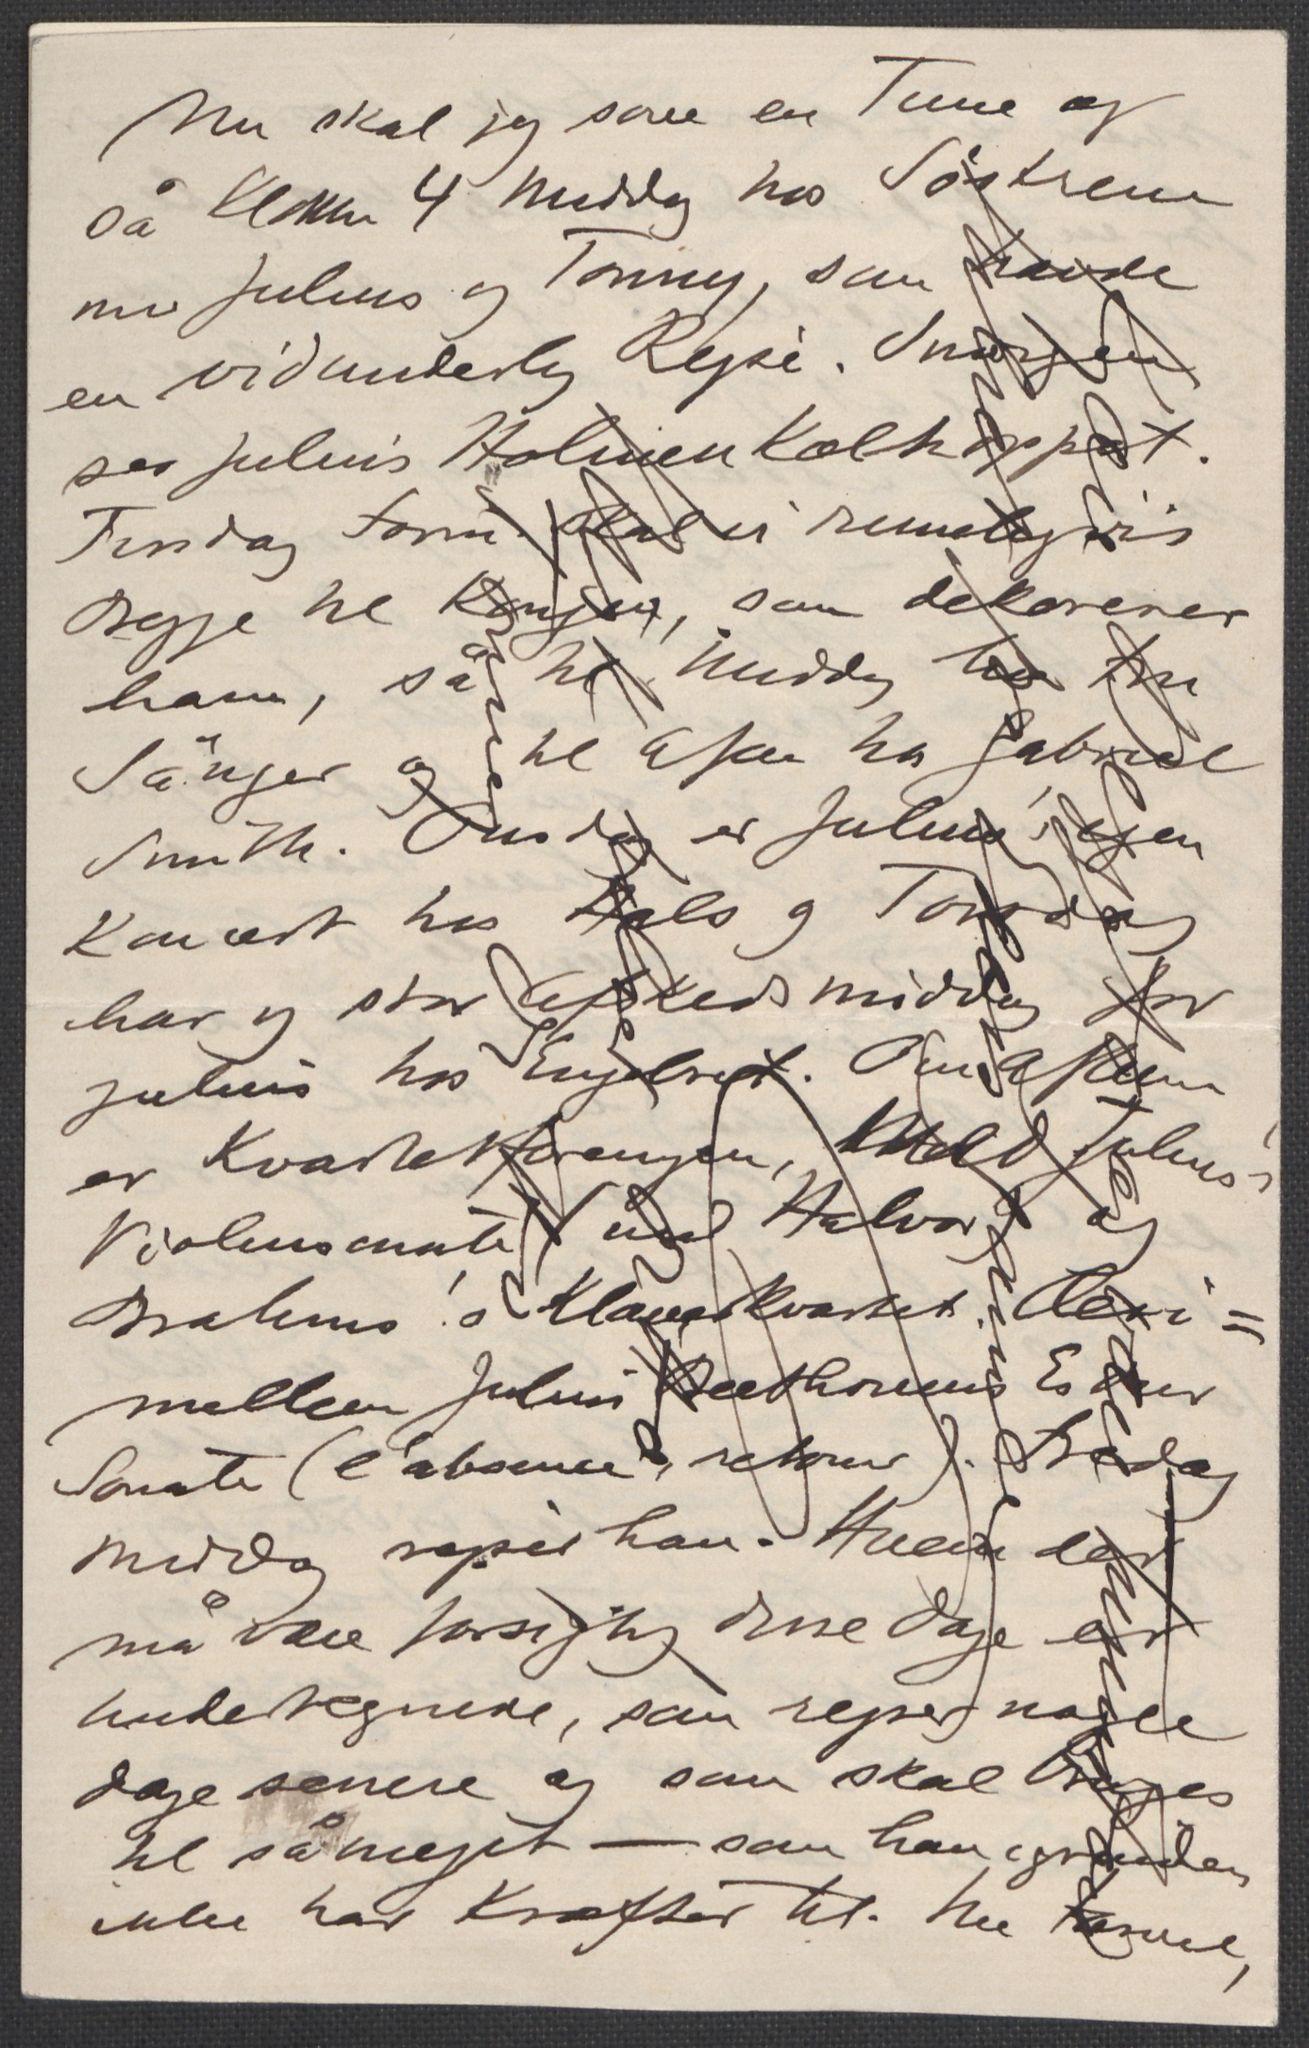 Nu skal jeg sove en Time og
så Klokken 4 Middag hos Søstrene
med Julius og Tonny, som havde
en vidunderlig Rejse. Imorgen
ser Julius Holmenkolhoppet.
Tirsdag Form. skal vi rimeligvis
begge til Kongen, som dekorerer
ham, så til Middag hos Fru
Sänger og til Aften hos Gabriel
Smith. Onsdag er Julius's egen
Koncert hos Hals og Torsdag
har jeg stor Afskedsmiddag for
Julius hos Engebret. Om Aftenen
er Kvartetforeningen, med Julius's
Violinsonate med Halvor og
Brahms's Klaverkvartet. Deri=
mellem Julius Beethovens Es dur
Sonate (l'absence, retour). Fredag
Middag rejser han. Hvem der
må være forsigtig disse Dage er
undertegnede, som rejser nogle
dage senere og som skal bruges
til såmeget — som han igrunden
ikke har Kræfter til. Nu Farvel,